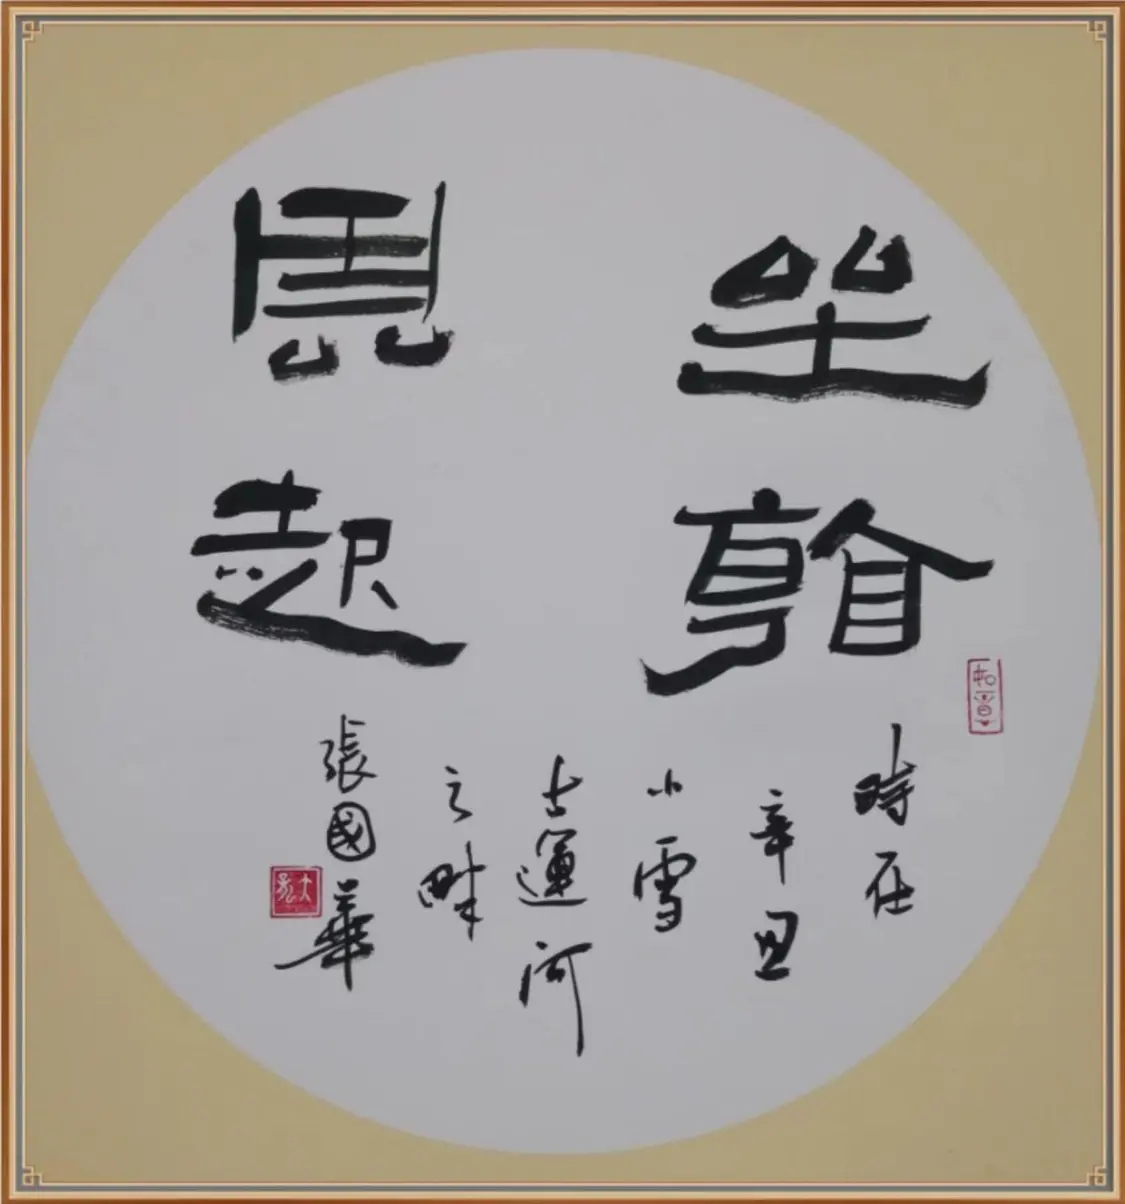 坐看
雲起
時在
辛丑
小雪
古運河
之畔
張國華